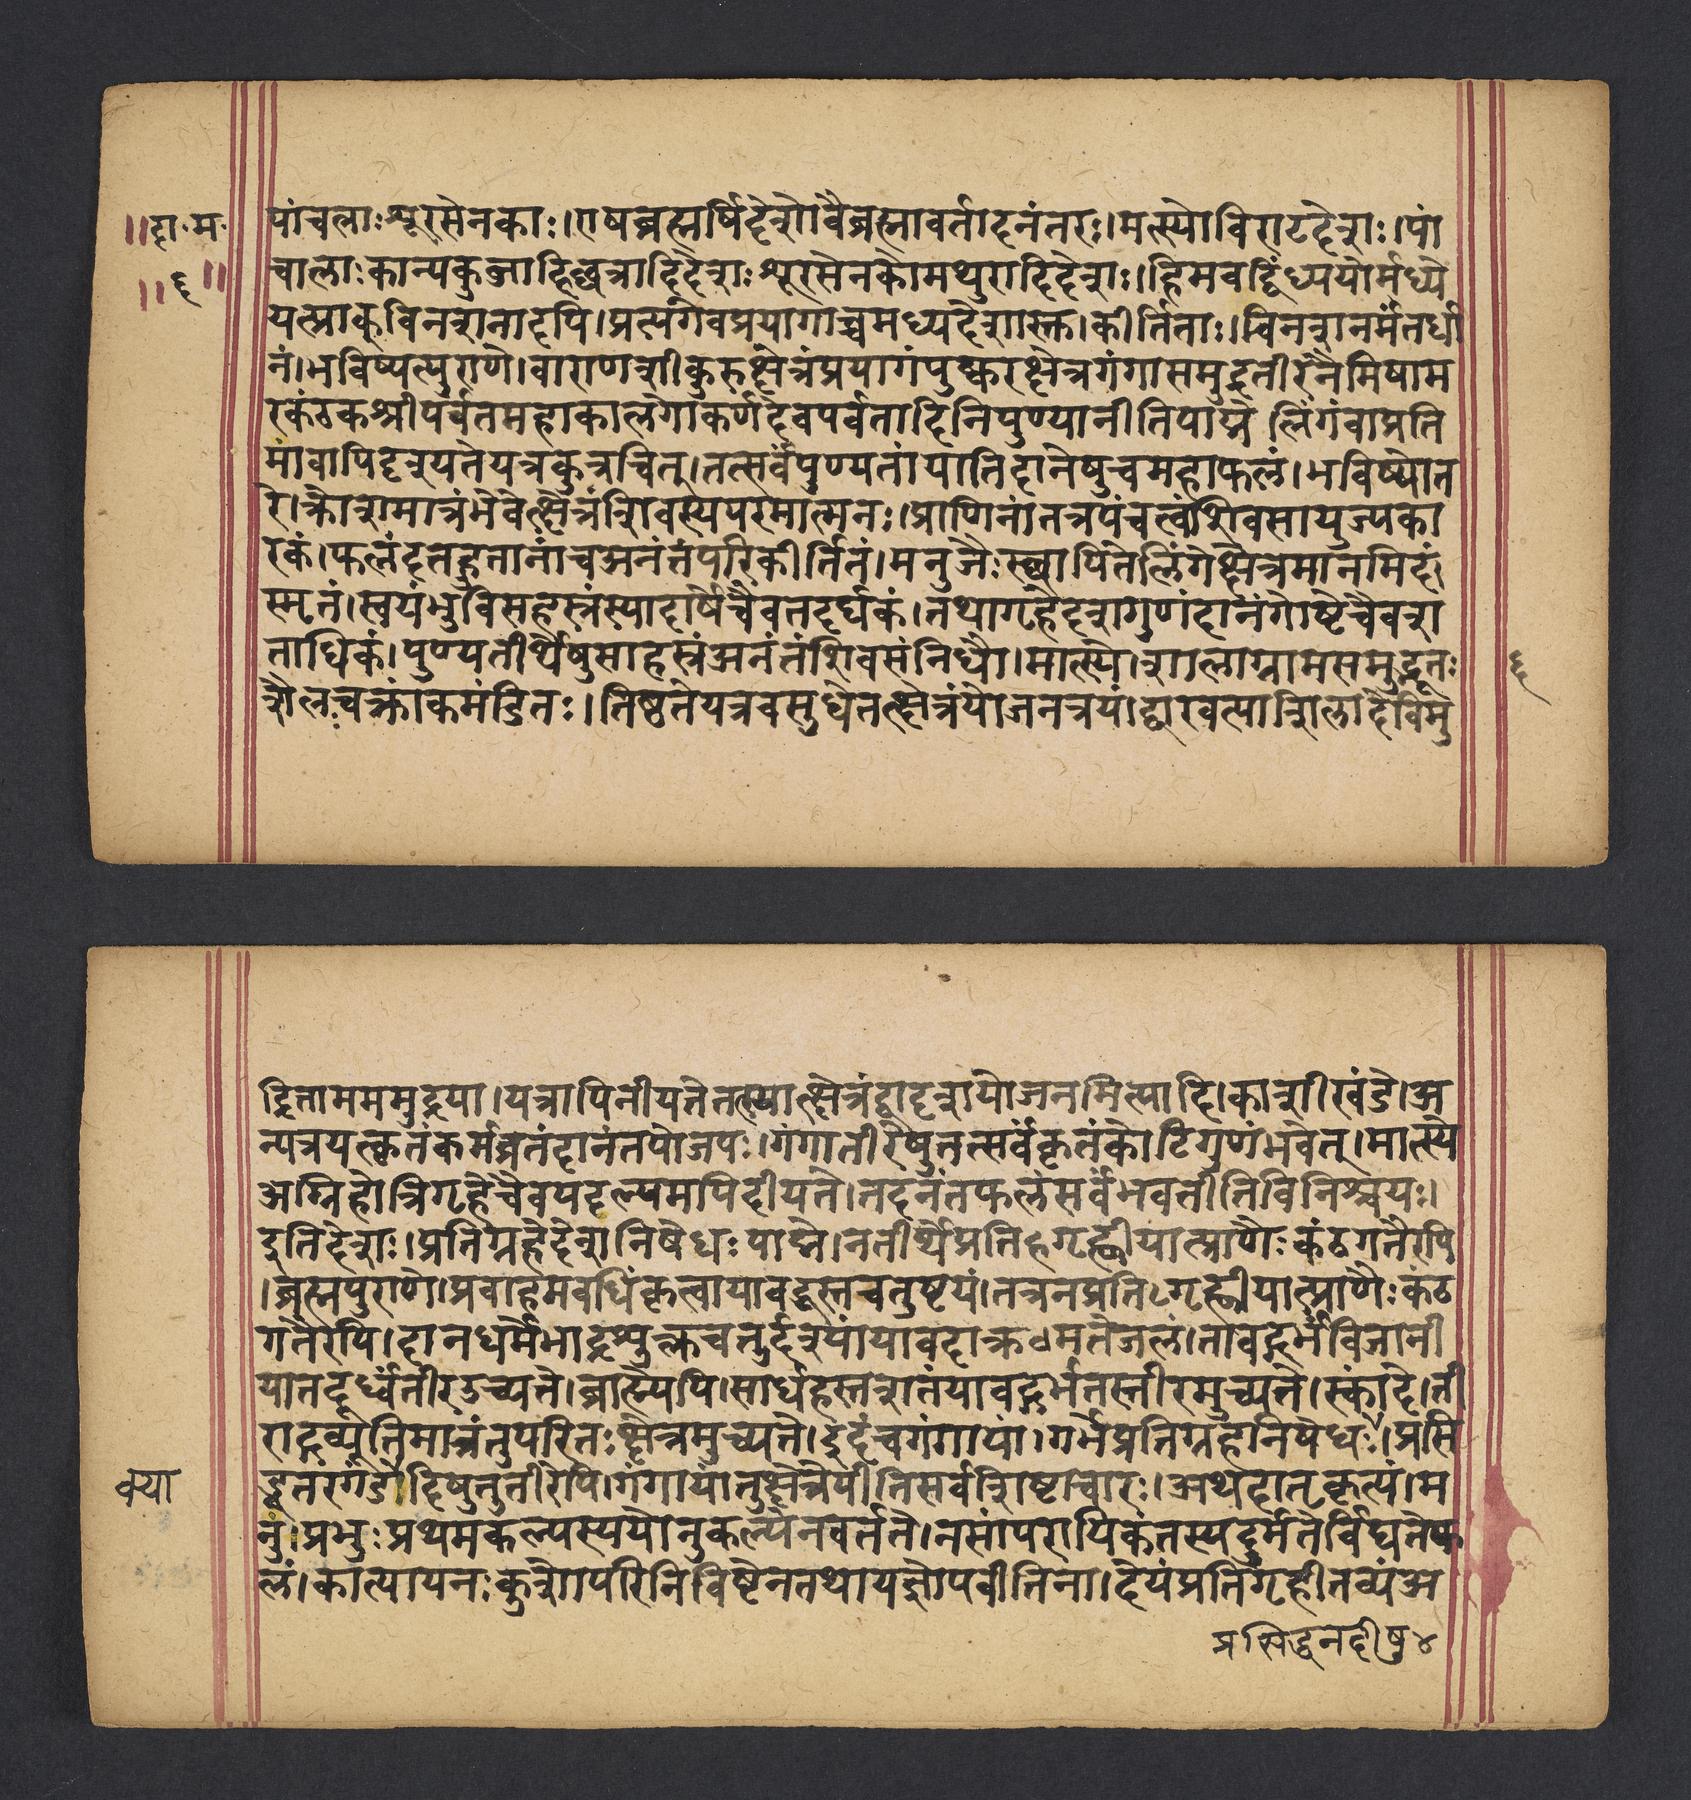 ॥दा॰म॰
॥६॥
पांचलाःशूरसेनकाः।एषब्रह्मर्षिदेशोवैब्रह्मावर्तादनंतरः।मत्स्योविराटदेशः।पां
चालाःकान्यकुब्जाहिछत्रादिदेशःशूरसेनकोमथुरादिदेशः।हिमवद्विंध्ययोर्मध्ये
यत्प्राकुविनशनादपि।प्रत्यगेवप्रयागाच्चमध्यदेशास्क।कीर्तिताः।विनशनर्मंतर्धा
नं।भविष्यत्पुराणे।वाराणशीकुरुक्षेत्रंप्रयागंपुष्करक्षेत्रगंगासमुद्रतीरंनैमिषाम
रकंठकश्रीपर्वतमहाकालगोकर्णदेवपर्वतादिनिपुण्यानीतिपाद्मे।लिंगंवाप्रति
मांवापिदृश्यतेयत्रकुत्रचित्।तत्सर्वंपुण्यतांयातिदानेषुचमहाफलं।भविष्योत
रे।क्रोशमात्रंभेवेत्क्षेत्रंशिवस्यपरमात्मनः।प्राणिनांतत्रपंचत्वंशिवसायुज्यका
रकं।फलंदत्तहुतानांचअनंतंपरिकीर्तितं।मनुजैःस्थापितेलिंगेक्षेत्रमानमिदं
स्मृतं।स्वयंभुविसहस्त्रंस्यादार्षेचैवतदर्धकं।तथागृहेदशगुणंदानंगोष्टेचैवश
ताधिकं।पुण्यतीर्थेषुसाहस्त्रंअनंतंशिवसंनिधौ।मात्स्ये।शालाग्रामसमुद्भूतः
शैलचक्रांकमंडितः।तिष्ठतेयत्रवसुधेतत्क्षेत्रंयोजनत्रयं।द्वारवत्याशिलादेविमु
६
द्रितामममुद्रया।यत्रापिनीयतेतत्स्यात्क्षेत्रंद्वादशयोजनमित्यादि।काशीखंडे।अ
न्यत्रयत्कृतंकर्मव्रतंदानंतपोजपः।गंगातीरेषुतत्सर्वंकृतंकोटिगुणंभवेत्।मात्स्ये
अग्निहोत्रिगृहेचैवयदल्पमपिदीयते।तदनंतफलंसर्वंभवतीतिविनिश्चयः।
इतिदेशः।प्रतिग्रहेदेशनिषेधःपाद्मे।नतीर्थेप्रतिहगृह्णीयात्प्राणैःकंठगतैरपि
।ब्रह्मपुराणे।प्रवाहमवधिंकृत्वायावद्धस्तचतुष्टयं।तत्रनप्रतिगृह्णीयात्प्राणैःकंठ
गतैरपि।दानधर्मेभाद्रशुक्लचतुर्दश्यांयावदाक्रमतेजलं।तावद्गर्भंविजानी
यातदूर्ध्वंतीरउच्यते।ब्राह्मेपि।सार्धहस्तशतंयावद्गर्भतस्तीरमुच्यते।स्कांदे।ती
राद्गव्यूतिमात्रंतुपरितःक्षेत्रमुच्यते।इदंचगंगायां।गर्भेप्रतिग्रहनिषेधः।प्रसि
द्धतरगंडीदिषुतुतीरेपि।गंगायांतुक्षेत्रेपीतिसर्वशिष्टाचारः।अथदातृकृत्यं।म
क्या
नु।प्रभुःप्रथमकल्पस्ययोनुकल्पेनवर्तते।नसांपरायिकंतस्यदुर्मतेर्विद्यतेफ
लं।कात्यायनःकुशोपरिनिविष्टेनतथायज्ञोपवीतिना।देयंप्रतिगृहीतव्यंअ
प्रसिद्धनदीषु४